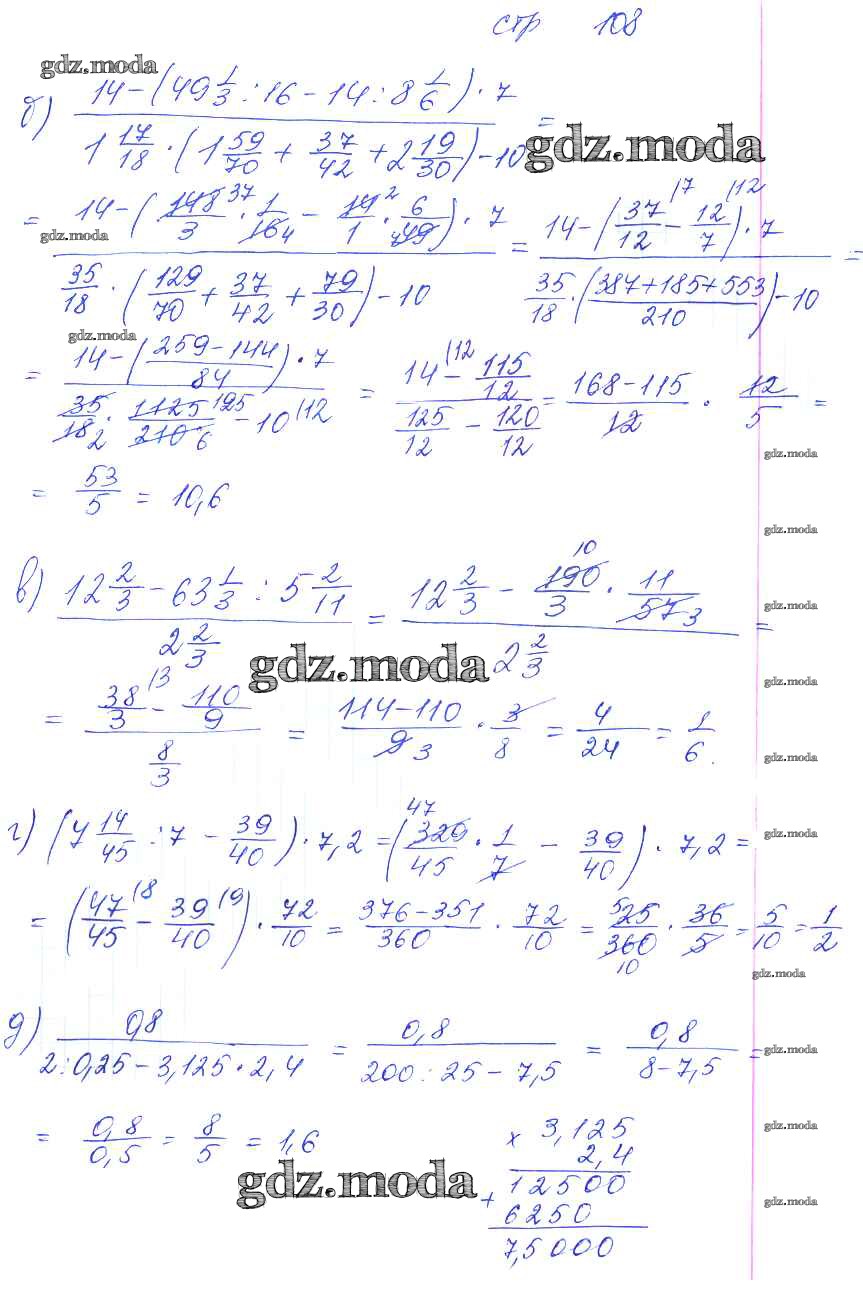 стр 108
gdz.moda
б) (14-(49 1/3 : 16 - 14 : 8 1/6) · 7)/(1 17/18 · (1 59/70 + 37/42 + 2 19/30) - 10) =
gdz.moda
= (14-(148/3 37 · 1/16 4 - 14/1 2 · 6/49 7) · 7)/(35/18 · (129/70 + 37/42 + 79/30) - 10) = (14-(37/12 (7 - 12/7 (12) · 7)/(35/18 · ((387+185+553)/210) - 10) =
gdz.moda
gdz.moda
= (14-((259-144)/84) · 7)/(35/18 2 · 1125/210 6 125 - 10 (12) = (14 (12 - 115/12)/(125/12 - 120/12) = (168-115)/12 · 12/5 =
gdz.moda
= 53/5 = 10,6
gdz.moda
в) (12 2/3 - 63 1/3 : 5 2/11)/(2 2/3) = (12 2/3 - 190/3 10 · 11/57 3)/(2 2/3) =
gdz.moda
gdz.moda
gdz.moda
= (38/3 (3 - 110/9)/(8/3) = (114-110)/9 3 · 3/8 = 4/24 = 1/6.
gdz.moda
г) (7 14/45 : 7 - 39/40) · 7,2 = (329/45 47 · 1/7 - 39/40) · 7,2 =
gdz.moda
= (47/45 (8 - 39/40 (9) · 72/10 = (376-351)/360 · 72/10 = 25/360 5 10 · 36/5 = 5/10 = 1/2
gdz.moda
gdz.moda
д) 0,8/(2:0,25-3,125·2,4) = 0,8/(200:25-7,5) = 0,8/(8-7,5) =
gdz.moda
= 0,8/0,5 = 8/5 = 1,6
gdz.moda
gdz.moda
× 3,125
2,4
+ 12500
6250
7,5000
gdz.moda